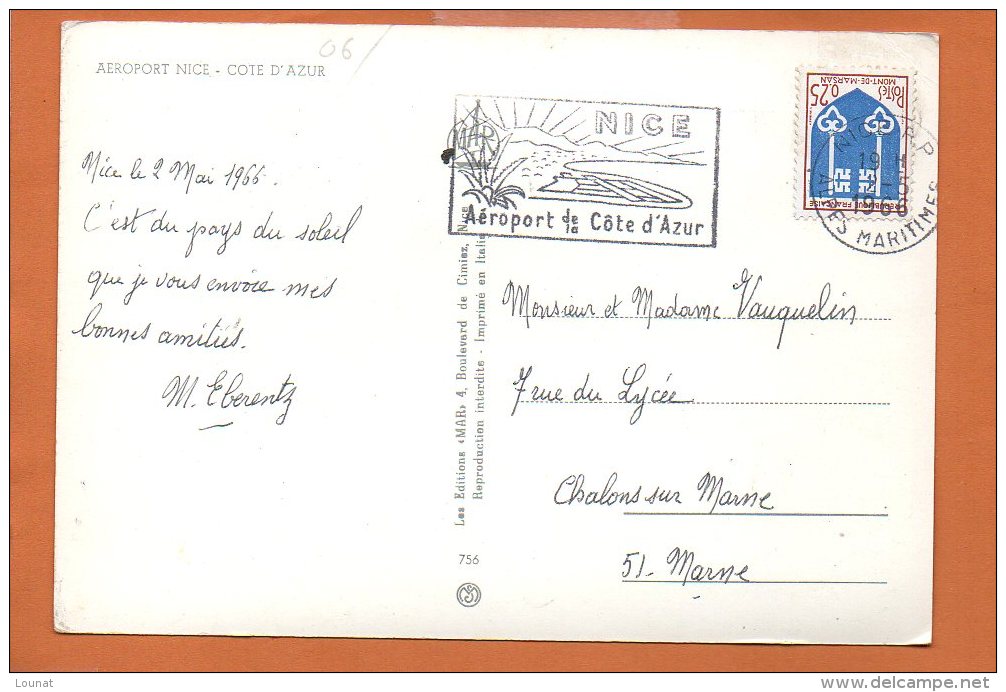 06
AEROPORT NICE - COTE D'AZUR
Nice le 2 Mai 1966.
C'est du pays du soleil
que je vous envoie mes
bonnes amitiés.
M. Eberentz
MAR
NICE
Aéroport de la Côte d'Azur
POSTES
MONT-DE-MARSAN
0,25
REPUBLIQUE FRANÇAISE
19 H
1966
ALPES MARITIMES
Les Editions «MAR» 4, Boulevard de Cimiez, Nice
Reproduction interdite - Imprimé en Italie
756
Monsieur et Madame Vauquelin
7 rue du Lycée
Chalons sur Marne
51- Marne
Lounat
www.delcampe.net